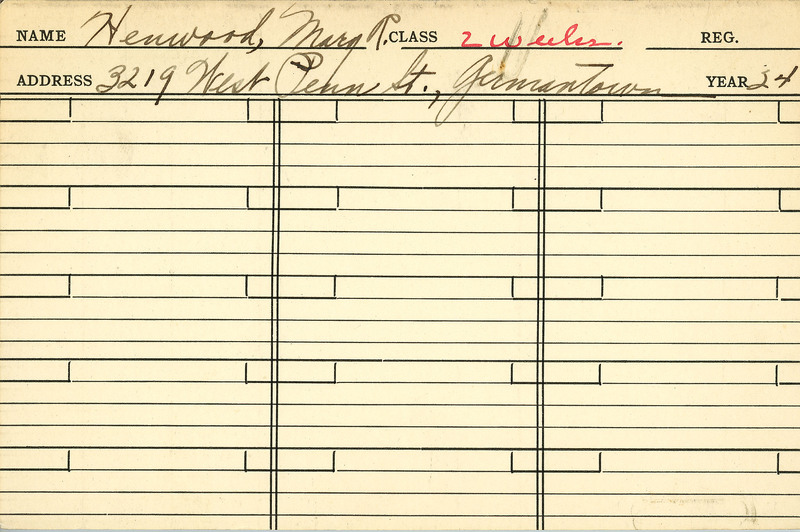 NAME Henwood, Mary R. CLASS 2 weeks. REG.
ADDRESS 3219 West Penn St., Germantown YEAR 24